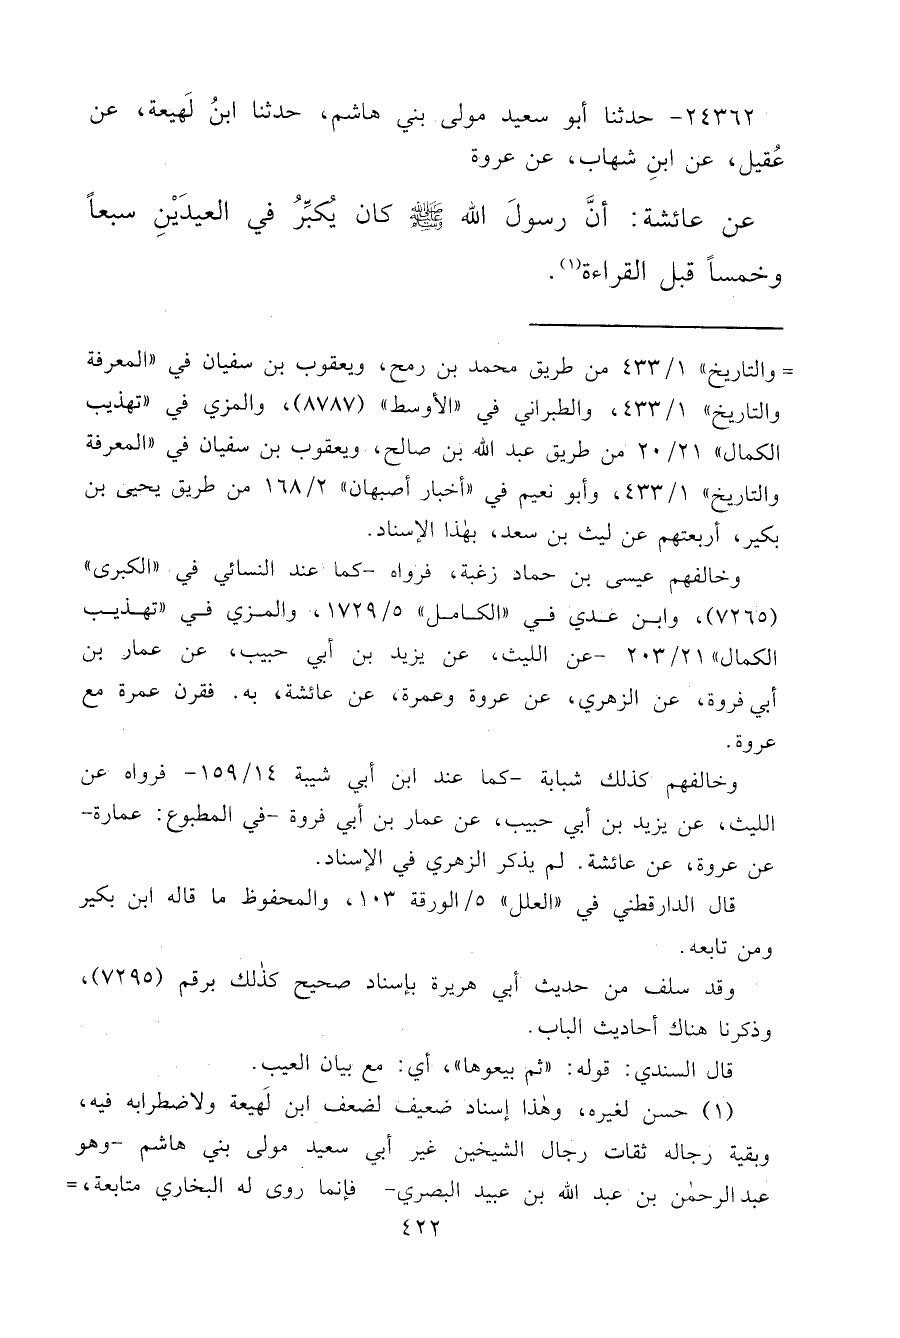 ٢٤٣٦٢- حدثنا أبو سعيد مولى بني هاشم، حدثنا ابنُ لَهيعة، عن
عُقيل، عن ابنِ شهاب، عن عروة
عن عائشة: أنَّ رسولَ الله ﷺ كان يُكبِّرُ في العيدَيْنِ سبعاً
وخمساً قبل القراءة(١).
= والتاريخ» ٤٣٣/١ من طريق محمد بن رمح، ويعقوب بن سفيان في «المعرفة
والتاريخ» ٤٣٣/١، والطبراني في «الأوسط» (٨٧٨٧)، والمزي في «تهذيب
الكمال» ٢٠/٢١ من طريق عبد الله بن صالح، ويعقوب بن سفيان في «المعرفة
والتاريخ» ٤٣٣/١، وأبو نعيم في «أخبار أصبهان» ١٦٨/٢ من طريق يحيى بن
بكير، أربعتهم عن ليث بن سعد، بهٰذا الإسناد.
وخالفهم عيسى بن حماد زغبة، فرواه -كما عند النسائي في «الكبرى»
(٧٢٦٥)، وابن عدي في «الكامل» ١٧٢٩/٥، والمزي في «تهذيب
الكمال» ٢٠٣/٢١ -عن الليث، عن يزيد بن أبي حبيب، عن عمار بن
أبي فروة، عن الزهري، عن عروة وعمرة، عن عائشة، به. فقرن عمرة مع
عروة.
وخالفهم كذلك شبابة -كما عند ابن أبي شيبة ١٥٩/١٤- فرواه عن
الليث، عن يزيد بن أبي حبيب، عن عمار بن أبي فروة -في المطبوع: عمارة-
عن عروة، عن عائشة. لم يذكر الزهري في الإسناد.
قال الدارقطني في «العلل» ٥/الورقة ١٠٣، والمحفوظ ما قاله ابن بكير
ومن تابعه.
وقد سلف من حديث أبي هريرة بإسناد صحيح كذٰلك برقم (٧٢٩٥)،
وذكرنا هناك أحاديث الباب.
قال السندي: قوله: «ثم بيعوها»، أي: مع بيان العيب.
(١) حسن لغيره، وهٰذا إسناد ضعيف لضعف ابن لَهيعة ولاضطرابه فيه،
وبقية رجاله ثقات رجال الشيخين غير أبي سعيد مولى بني هاشم -وهو
عبد الرحمٰن بن عبد الله بن عبيد البصري- فإنما روى له البخاري متابعة، =
٤٢٢